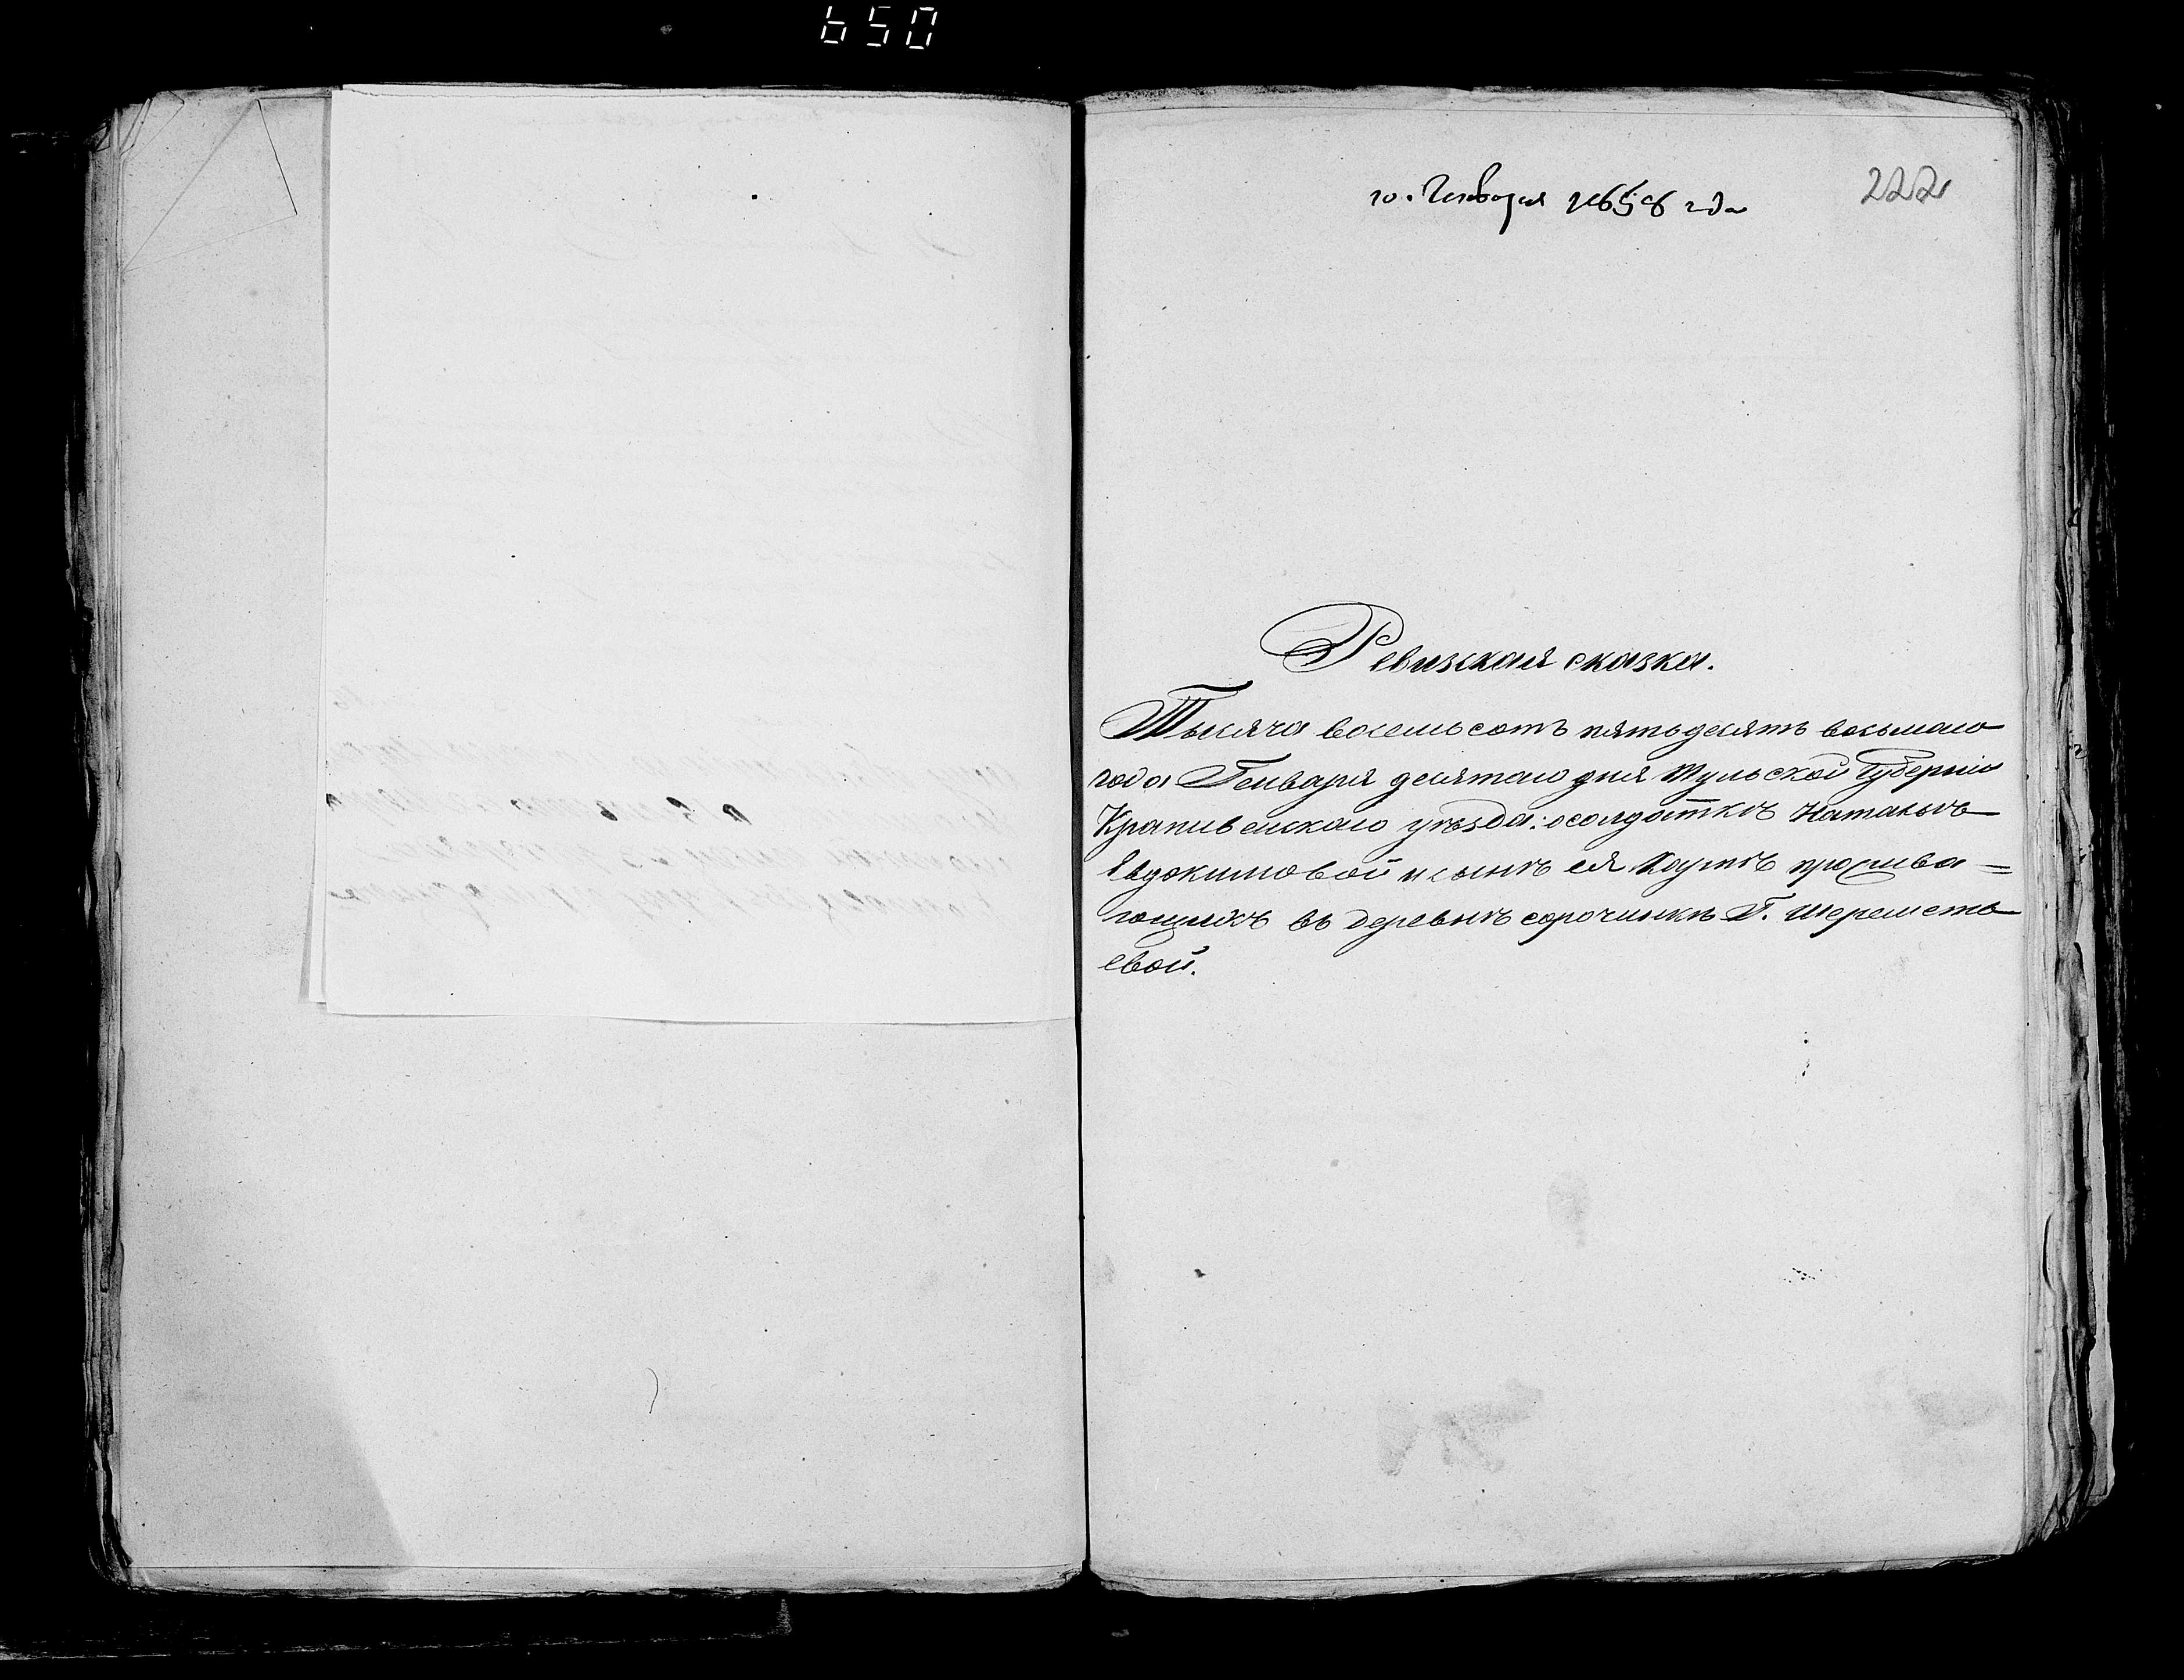 650
10. Генваря 1858 года
222
Ревизская сказка.
Тысяча восемьсотъ пятьдесятъ восьмаго
года Генваря десятаго дня Тульской Губерніи
Крапивенскаго уѣзда: осолдаткѣ Натальѣ
Евдокимовой и сынѣ ея прожива=
ющихъ въ деревнѣ сорочинкѣ Г. Шереметь
евой.